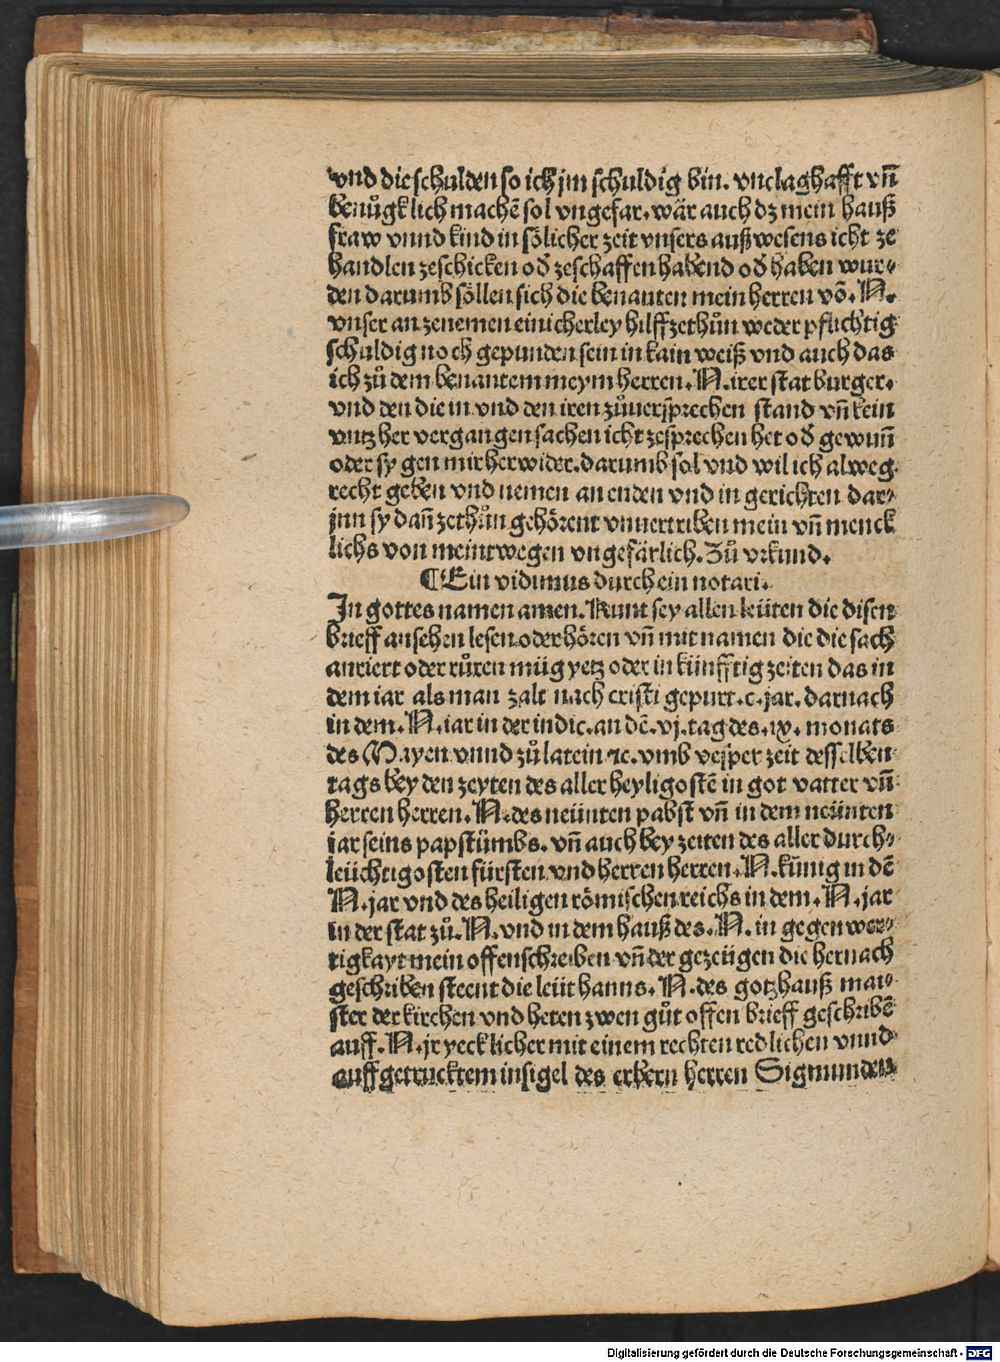 vnd die schulden so ich jm schuldig bin. vnclaghafft vn̄
benuͤgklich machē sol vngefar. waͤr auch dz mein hauß
fraw vnnd kind in soͤlicher zeit vnsers außwesens icht ze
handlen zeschicken oď zeschaffen habend oď haben wur⸗
den darumb soͤllen sich die benanten mein herren vō. N.
vnser an zenemen einicherley hilff zethuͦn weder pflichtig
schuldig noch gepunden sein in kain weiß vnd auch das
ich zuͦ dem benantem meym herren. N. irer stat burger.
vnd den die in vnd den iren zuͦuersprechen stand vn̄ kein
vntz her vergangen sachen icht zesprechen het oď gewun̄
oder sy gen mir herwider. darumb sol vnd wil ich alweg
recht geben vnd nemen an enden vnd in gerichten dar⸗
jnn sy dan̄ zethuͦn gehoͤrent vnuertriben mein vn̄ menck
lichs von meint wegen vngefaͤrlich. Zuͦ vrkund.
¶ Ein vidimus durch ein notari.
In gottes namen amen. Kunt sey allen leuͤten die disen
brieff ansehen lesen oder hoͤren vn̄ mit namen die die sach
anriert oder ruͤren muͤg yetz oder in kuͤnfftig zeiten das in
dem iar als man zalt nach cristi gepurt. c. jar. darnach
in dem. N. iar in der indic. an dē. vj. tag des. ix. monats
des Mayen vnnd zuͦ latein ⁊c. vmb vesper zeit desselben
tags bey den zeyten des aller heyligostē in got vatter vn̄
herren herren. N. des neuͤnten pabst vn̄ in dem neuͤnten
jar seins papstuͤmbs. vn̄ auch bey zeiten des aller durch⸗
leuͤchtigosten fuͤrsten vnd herren herren. N. kuͤnig in dē
N. jar vnd des heiligen roͤmischen reichs in dem. N. jar
in der stat zuͦ. N. vnd in dem hauß des. N. in gegen wer⸗
tigkayt mein offenschreiben vn̄ der gezeuͤgen die hernach
geschriben steent die leuͤt hanns. N. des gotzhauß mai⸗
ster der kirchen vnd heten zwen guͦt offen brieff geschribē
auff. N. jr yecklicher mit einem rechten redlichen vnnd
auffgetrucktem insigel des erbern herren Sigmunden
Digitalisierung gefördert durch die Deutsche Forschungsgemeinschaft - DFG